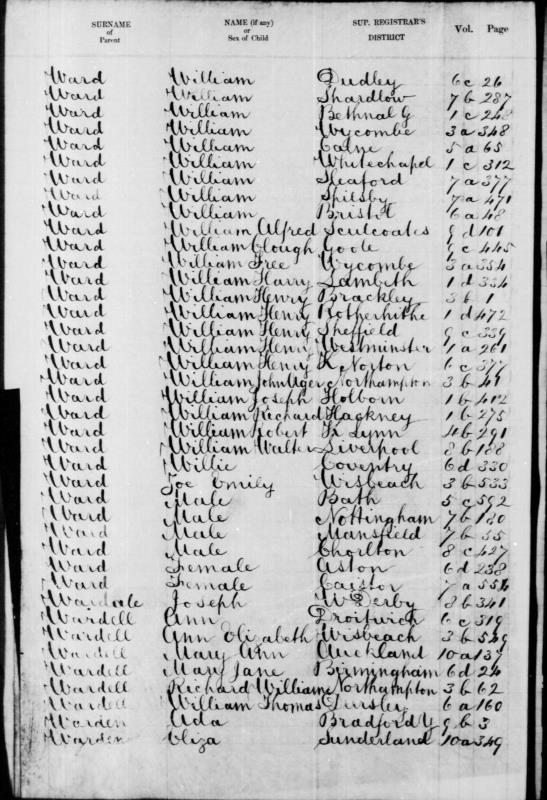 SURNAME of Parent NAME (if any) or Sex of Child SUP. REGISTRAR'S DISTRICT Vol. Page
Ward William Dudley 6c 26
Ward William Shardlow 7b 287
Ward William Bethnal G 1c 248
Ward William Wycombe 3a 348
Ward William Calne 5a 65
Ward William Whitechapel 1c 312
Ward William Sleaford 7a 377
Ward William Spilsby 7a 471
Ward William Bristol 6a 48
Ward William Alfred Sculcoates 9d 101
Ward William Clough Goole 9c 445
Ward William Free Wycombe 3a 354
Ward William Harry Lambeth 1d 334
Ward William Henry Brackley 3b 1
Ward William Henry Rotherhithe 1d 472
Ward William Henry Sheffield 9c 339
Ward William Henry Westminster 1a 261
Ward William Henry K. Norton 6c 377
Ward William John Northampton 3b 41
Ward William Joseph Holborn 1b 412
Ward William Richard Hackney 1b 275
Ward William Robert Lynn 4b 291
Ward William Walter Liverpool 8b 188
Ward Willie Coventry 6d 330
Ward Zoe Emily Wisbeach 3b 533
Ward Male Bath 5c 592
Ward Male Nottingham 7b 180
Ward Male Mansfield 7b 55
Ward Male Chorlton 8c 427
Ward Female Aston 6d 238
Ward Female Caistor 7a 554
Wardale Joseph W Derby 8b 341
Wardell Ann Droitwich 6c 319
Wardell Ann Elizabeth Wisbeach 3b 549
Wardell Mary Ann Auckland 10a 137
Wardell Mary Jane Birmingham 6d 24
Wardell Richard William Northampton 3b 62
Wardell William Thomas Dursley 6a 160
Warden Ada Bradford Y 9b 3
Warden Eliza Sunderland 10a 349